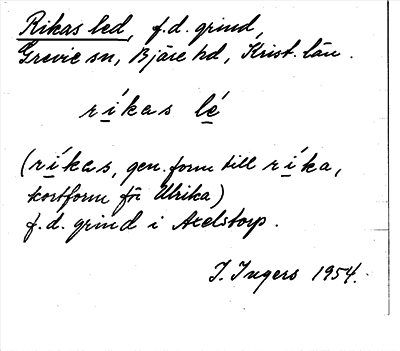 Rikas led, f.d. grind,
Grevie sn, Bjäre hd, Krist. län.
ríkas lé
(ríkas, gen. form till ríka,
kortform för Ulrika)
f.d. grind i Axelstorp.
I. Ingers 1954.